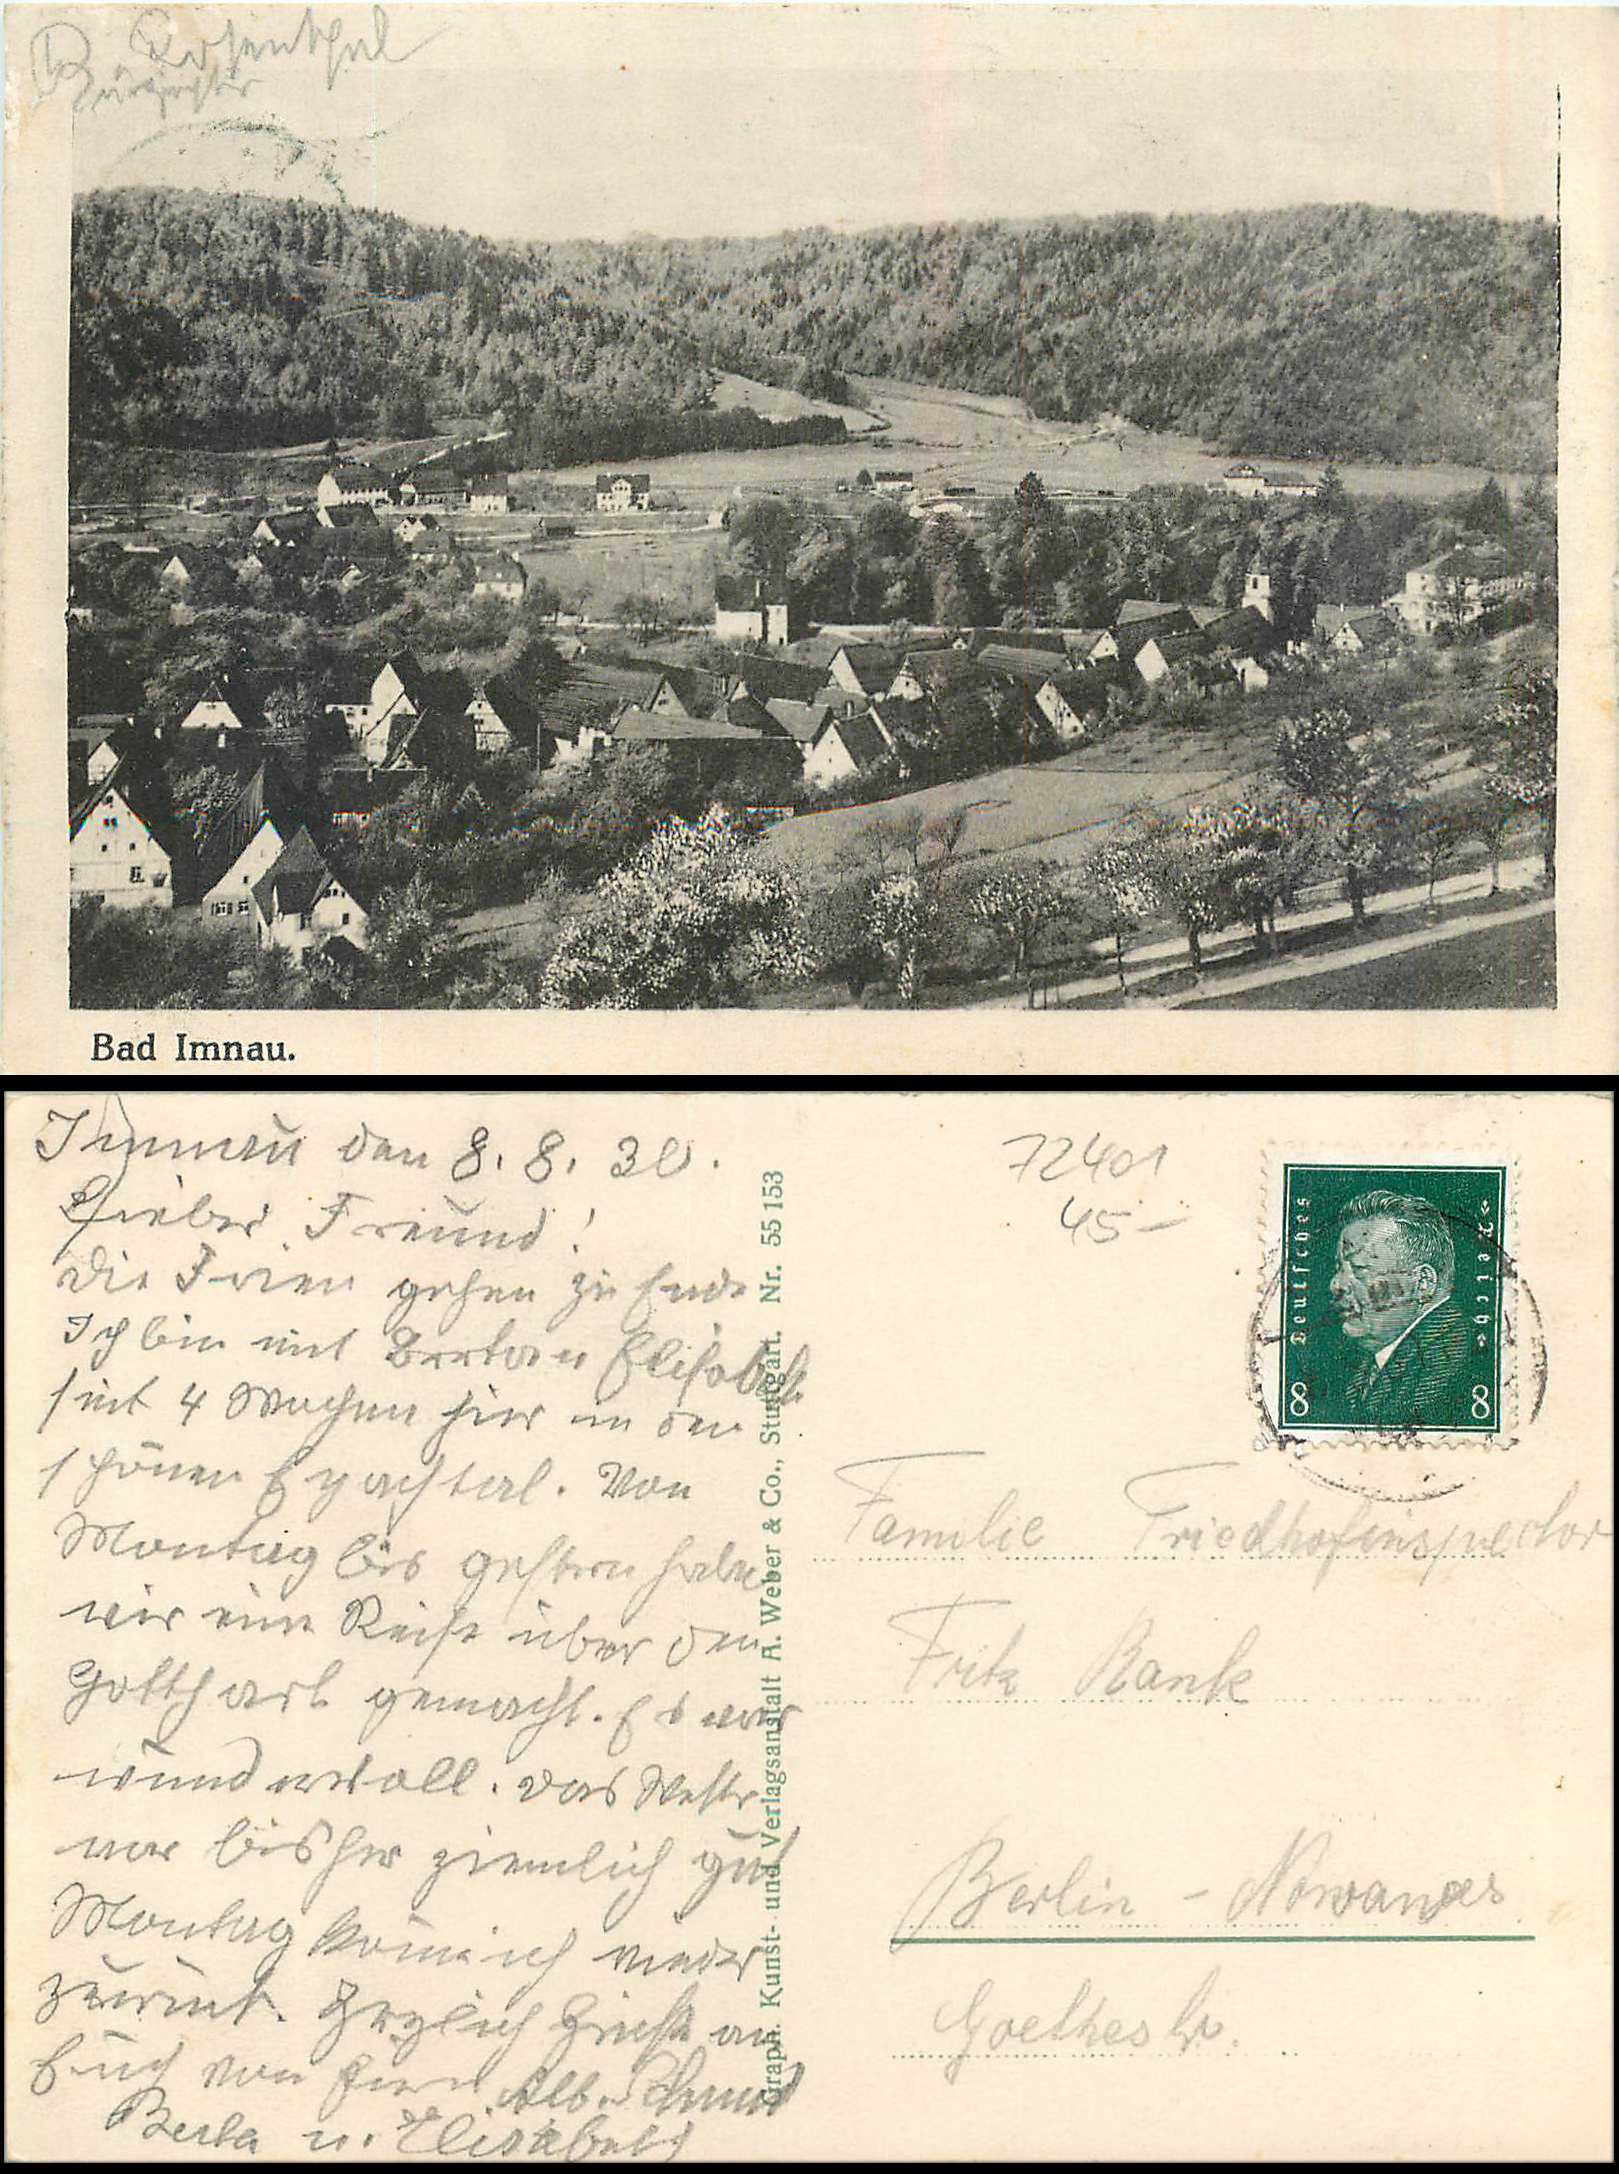 Rosenthal
Bad Imnau.
Imnau den 8. 8. 30.
Lieber Freund!
Die Ferien gehen zu Ende
Ich bin mit Berta u Elisabeth
seit 4 Wochen hier in den
schönen Eyachtal. Von
Montag bis gestern haben
wir eine Reise über den
Gotthart gemacht. Es war
wundervoll. Das Wetter
war bisher ziemlich gut
Montag komme ich wieder
zurück. Herzlich Grüße an
Euch von Euren Alb. Schmid
Berta u. Elisabeth
Graph. Kunst- und Verlagsanstalt A. Weber & Co., Stuttgart. Nr. 55 153
72401
45-
Deutsches
Reich
8
8
Familie Friedhofinspector
Fritz Rank
Berlin - Nowawes
Goethestr.